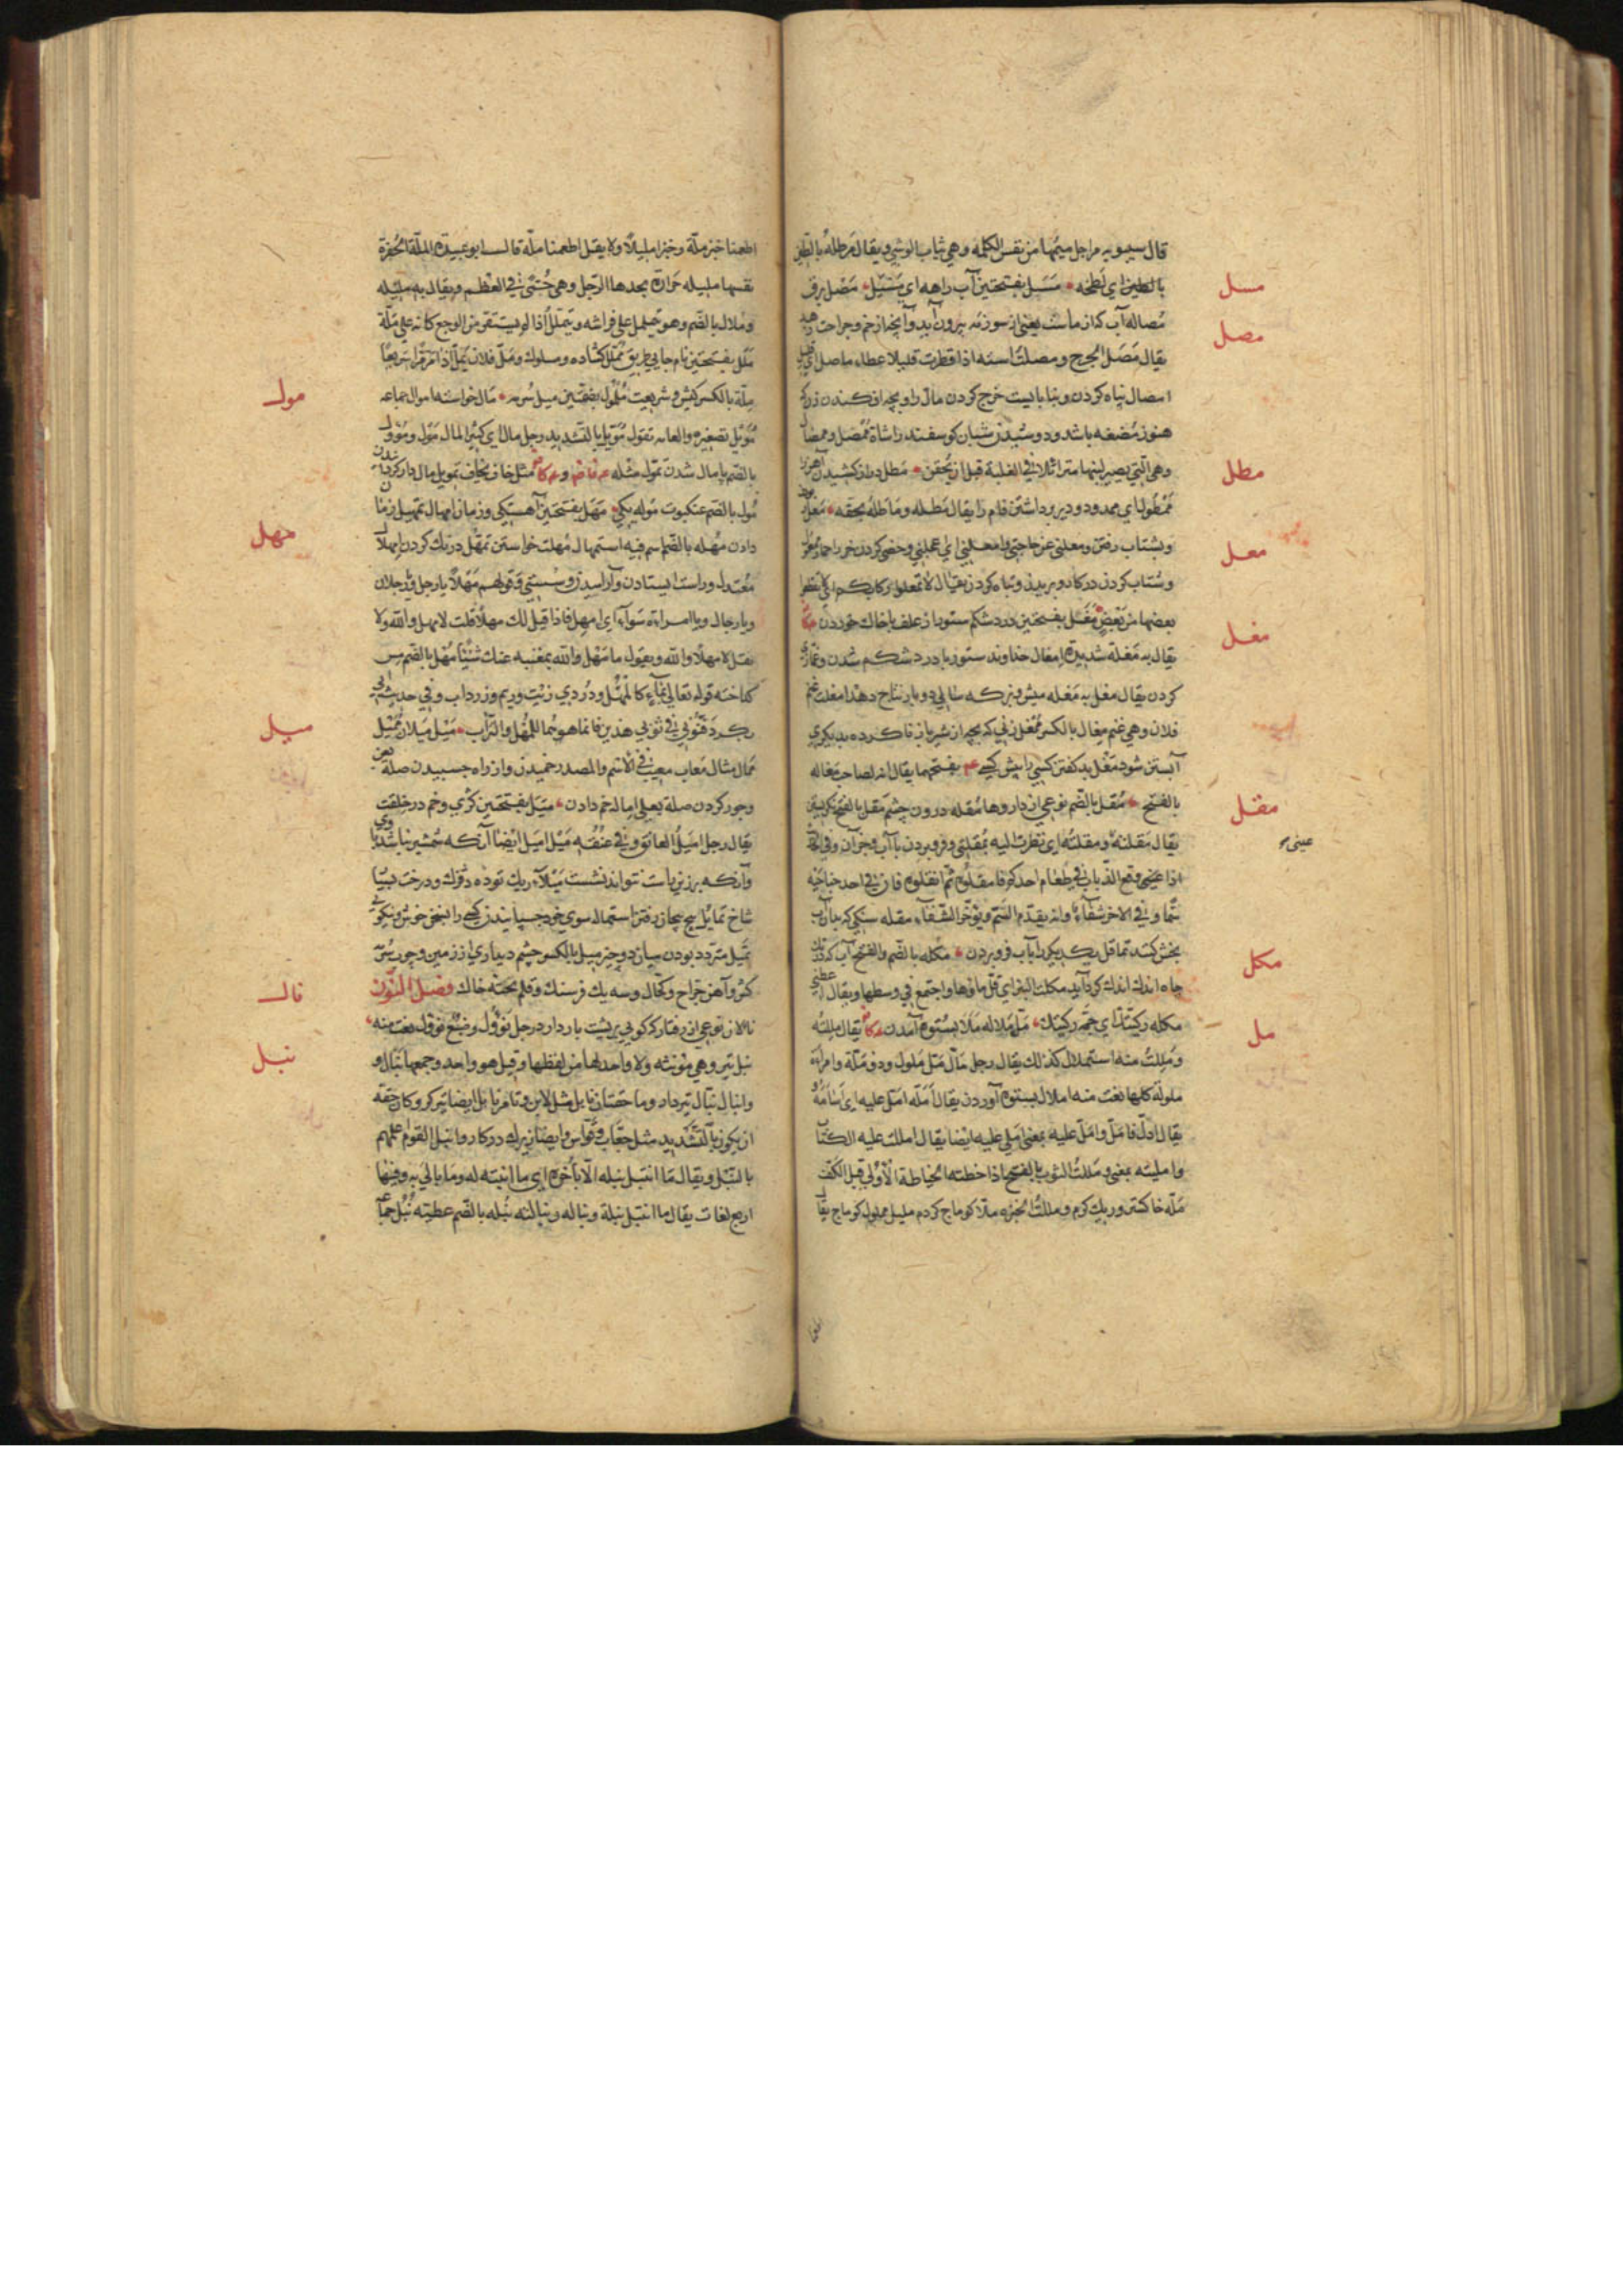 قال سيبويه مراجل ميمها من نفس الكلمة وهي ثياب الوشي ويقال مرطله بالطين
مسل
بالطين اي لطخه مسل بفتحتين آب راهه اي مسيل مصل برف
مصل
مصاله آب كه از ماست يعني از سوزنه بيرون آيد وآنچه از خم وجراحت
يقال مصل الجرح ومصلت استه اذا قطرت قليلا عطاء ماصل اي قليل
امصال تباه كردن وبنا بايست خرج كردن مال را وبچه افكندن زن كه
هنوز مضغه باشد ودوشيدن شبان كوسفند را شاة ممصل وممصال
مطل
وهي التي يصير لبنها متزايلا في العلبة قبل ان يحقن مطل دراز كشيدن آهن را
ممطول اي ممدود ودير برداشتن فام را يقال مطله وماطله بحقه معل
معل
وبشتاب رفتن ومعلني عن حاجتي وامعلني اي اعجلني وخصي كردن خر
وشتاب كردن در كار وبريدن وتباه كردن يقال لا تمعلوا ركابكم اي لا تقطعوا
مغل
بعضها من بعض مغل بفتحتين درد شكم ستور از علف باخاك خوردن
يقال به مغلة شديدة امغال خداوند ستور با درد شكم شدن وغمازي
كردن يقال مغل به مغله ميش وبز كه سالي دو بار نتاج دهد امغلت غنم
فلان وهي غنم مغال بالكسر ممغل زني كه بچه از شير باز ناكرده بديكري
آبستن شود مغل بد كفتن كسي را پيش كسي بفتحهما يقال انه لصاحب مغاله
مقل
بالفتح مقل بالضم نوعي از داروها مقله درون چشم مقل بالفتح نكريستن
عيني
يقال مقلته ومقلته اي نظرت اليه بمقلتي وفرو بردن باآب وجز آن وفي الحديث
اذا وقع الذباب في طعام احدكم فامقلوه ثم انقلوه فان في احد جناحيه
سما وفي الاخر شفاء وانه يقدم السم ويؤخر الشفاء مقله سنكي كه بدان آب
مكل
بخش كنند تماقل يكديكر را بآب فرو بردن مكله بالضم والفتح آب كه در تك
چاه اندك اندك كرد آيد مكلت البئر اي قل ماؤها واجتمع في وسطها ويقال اعطني
مل
مكله ركيتك اي جمة ركيتك مل ملاله ملا بستوه آمدن يقال مللته
ومللت منه استملال كذلك يقال رجل مال مل ملول وذو ملة وامراة
ملولة كلها نعت منه املال بستوه آوردن يقال امله امل عليه اي اسامه
يقال ادل فامل وامل عليه بمعني املي عليه ايضا يقال امللت عليه الكتاب
وامليته بمعني ومللت الثوب بالفتح اذا خطته الخياطة الاولي قبل الكف
مله خاكستر وريك كرم ومللت الخبزه ملا كوماج كردم مليل مملول كوماج يقال
اطعمنا خبز ملة وخبزا مليلا ولا يقل اطعمنا ملة قال ابو عبيدة الملة الحفرة
نفسها مليله حرارة يجدها الرجل وهي حمى في العظم ويقال به مليله
وملال بالضم وهو يتململ علي فراشه ويتملل اذا لم يستقر من الوجع كانه علي ملة
ملل بفتحتين نام جايي طريق ممل كشاده ومسلوك ومل فلان يمل اذا مر مرا سريعا
مول
ملة بالكسر كيش وشريعت ملمول بضمتين ميل سرمه مال خواسته اموال جماعه
مويل تصغيره والعامه تقول مويل بالتشديد رجل مال اي كثير المال مول ومؤول
بالضم با مال شدن تمول مثله مثل خاف يخاف تمويل مال دار كردانيدن
مهل
مول بالضم عنكبوت موله يكي مهل بفتحتين آهستكي وزمان امهال تمهيل زمان
دادن مهله بالضم اسم فيه استمهال مهلت خواستن تمهل درنك كردن امهلال
معتدل وراست ايستادن وآراميدن وسستي وقولهم مهلا يا رجل ويا رجلان
ويا رجال ويا امراة سواء اي امهل فاذا قيل لك مهلا قلت لا مهل والله ولا
تقل لا مهلا والله ويقول ما مهل والله بمغنيه عنك شيئا مهل بالضم مس
كداخته قوله تعالي بماء كالمهل ودردي زيت وريم وزرداب وفي حديث ابي
ميل
بكر دفنوني في ثوبي هذين فانما هو للمهل والتراب ميل ميلان مميل
ممال مثال معاب معيب في الاسم والمصدر خميدن واز راه چسبيدن صلة
وجور كردن صلة بعلي امالة خم دادن ميل بفتحتين كژي وخم در خلقت
يقال رجل اميل العاتق وفي عنقه ميل اميل ايضا آنكه شمشير نباشد با وي
وآنكه بر زين راست نتواند نشست ميلاء ريك توده بزرك ودرخت بسيار
شاخ تمايل پيچاپيچان رفتن استماله سوي خود چسپانيدن كسي را بسخن خوش ونيكويي
تميل متردد بودن ميان دو چيز ميل بالكسر چشم ديداري از زمين وچوب سرمه
نال
كش وآهن جراح وكحال وسه يك فرسنك وقلم تخته خاك فصل النون
نالان نوعي از رفتار كه كويي بر پشت بار دارد رجل نؤول وضبع نؤول نعت منه
نبل
نبل تير وهي مؤنثه ولا واحد لها من لفظها وقيل هو واحد وجمعها نبال و
وانبال نبال تيردار وما حقتان نابل مثل لابن وتامر نابل ايضا تيركر وكان حقه
ان يكون بالتشديد مثل جعاب وقواس وايضا زيرك در كار وانبل القوام علمهم
بالنبل ويقال ما انتبل نبله الا بآخره اي ما انتبه له وما بالي به وفيها
اربع لغات يقال ما انتبل نبلة ونباله ونبالته نبله بالضم عطيه نبل جماعه